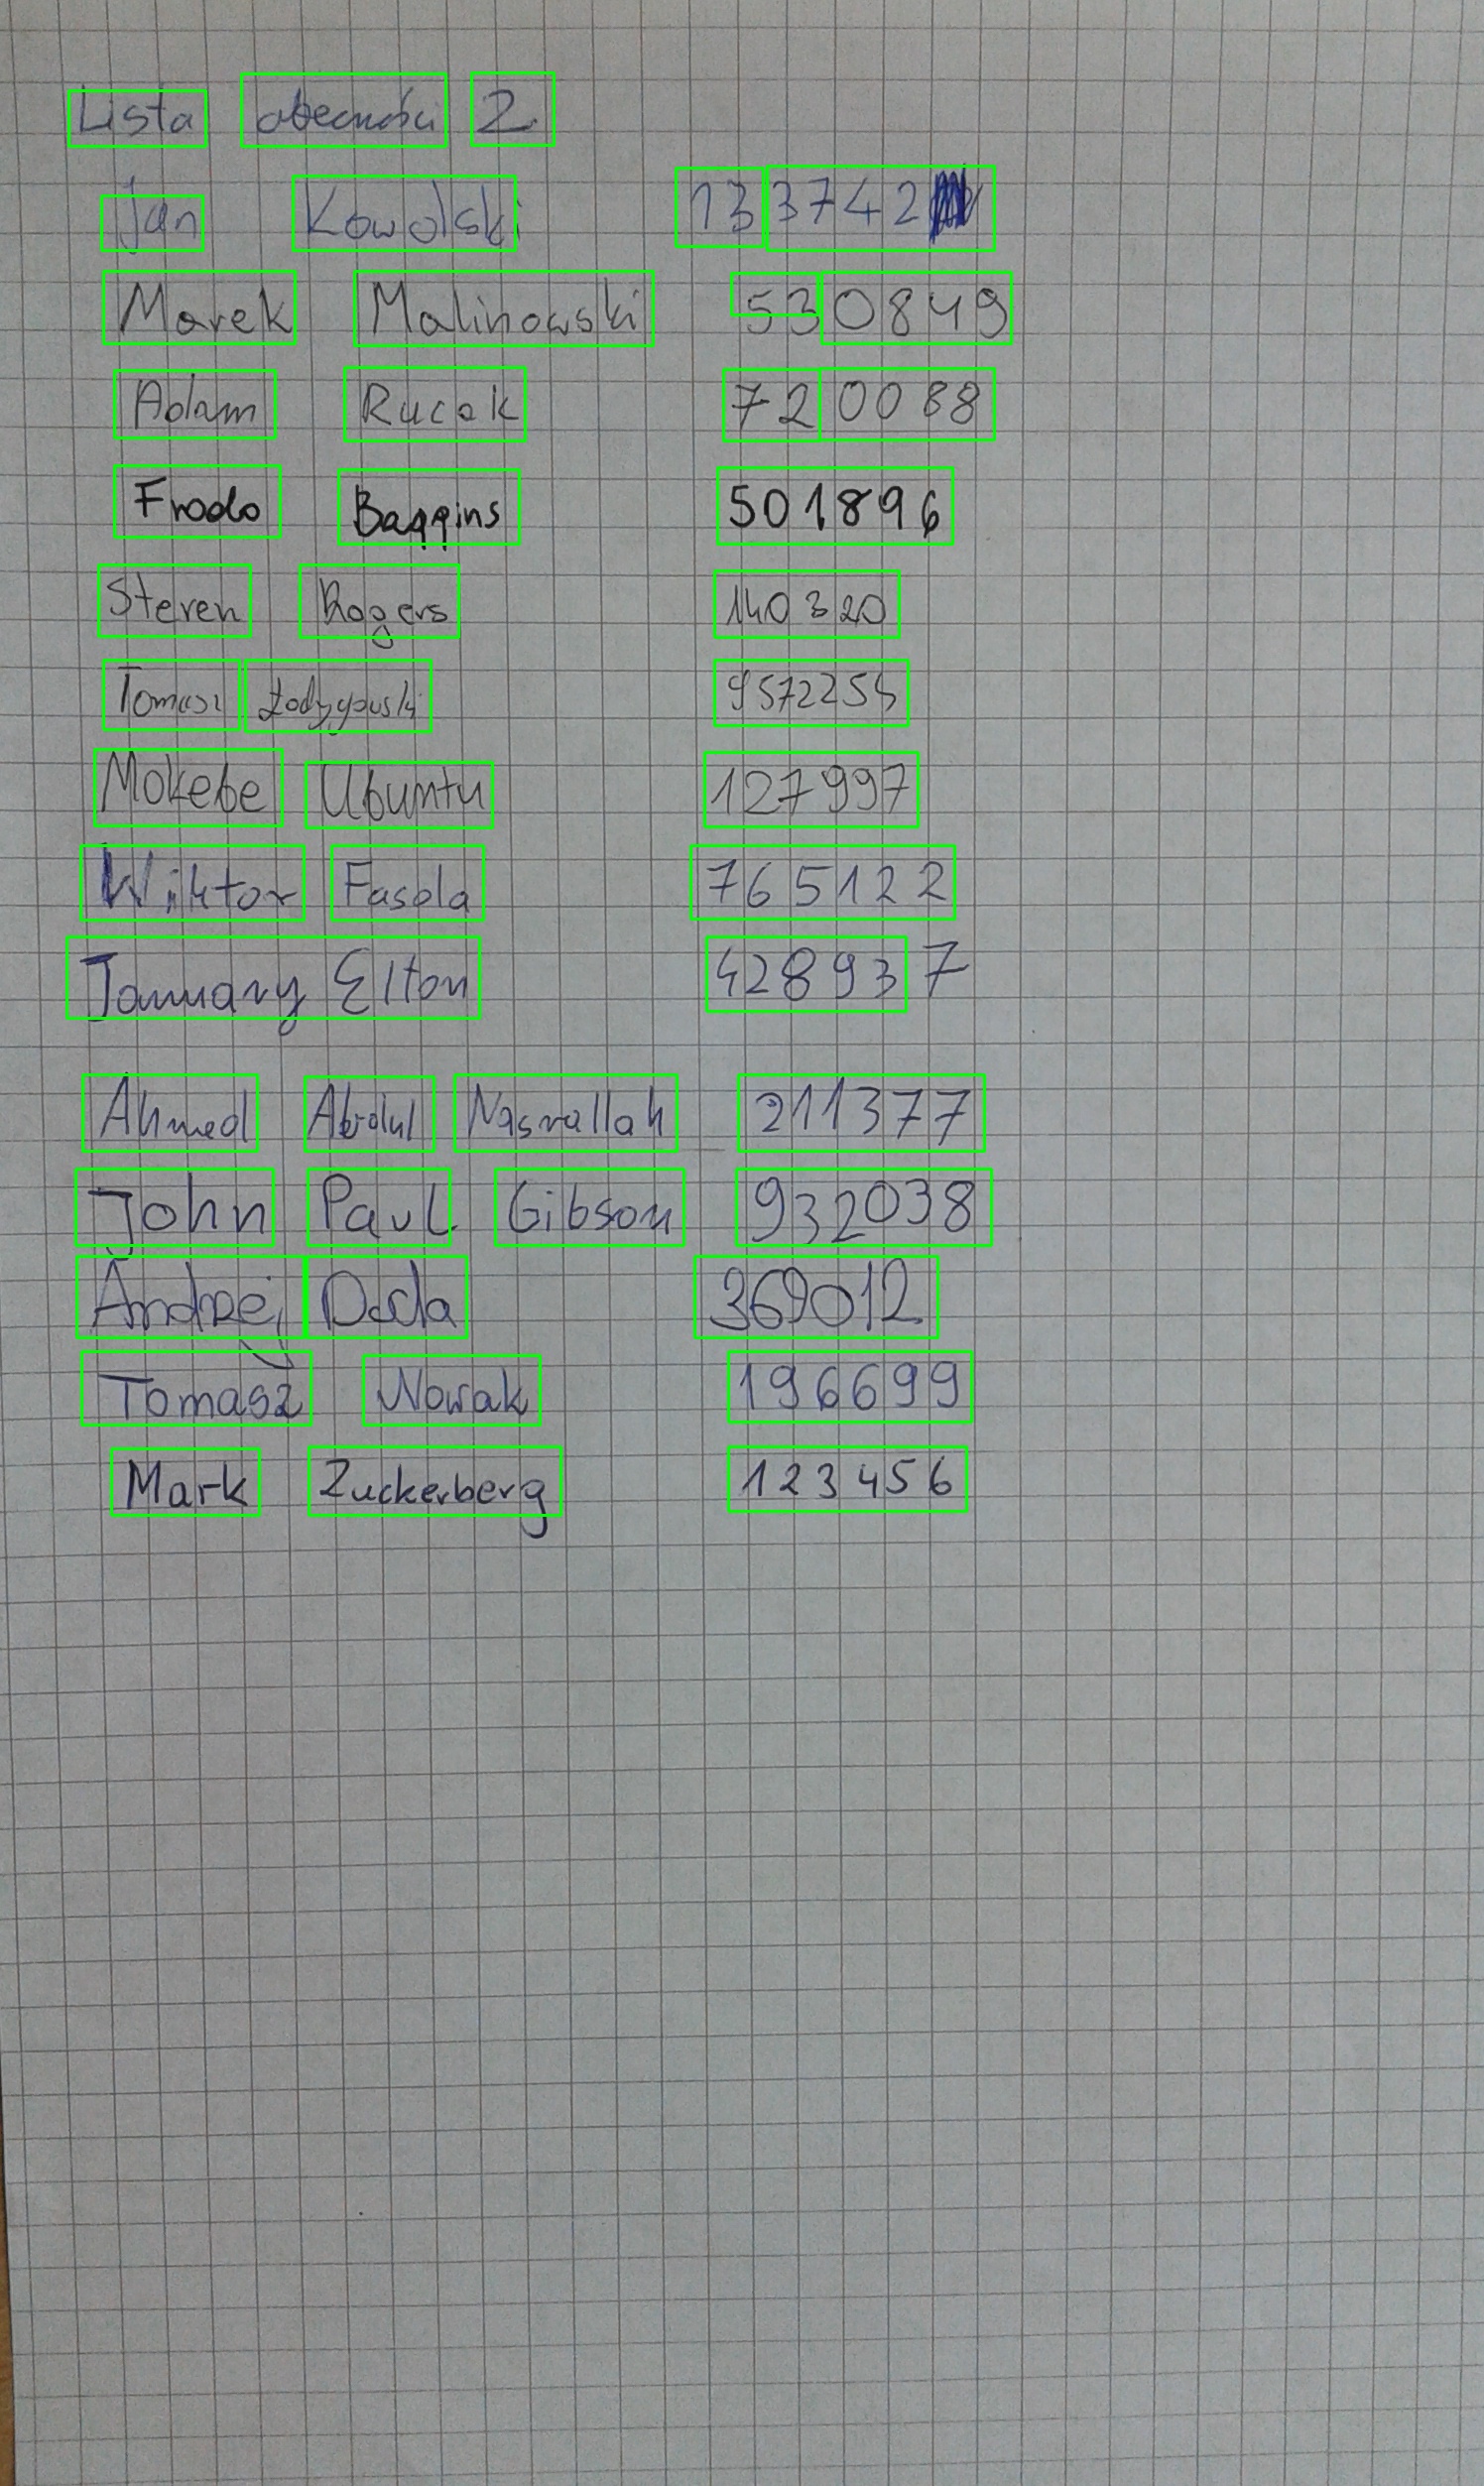 Lista obecności 2
Jan Kowalski 133742
Marek Malinowski 530849
Adam Rucak 720088
Frodo Baggins 501896
Steven Rogers 140320
Tomasz Łodygowski 9572255
Mokebe Ubuntu 127997
Wiktor Fasola 765122
January Elton 428937
Ahmed Abdul Nasrallah 211377
John Paul Gibson 932038
Andrzej Duda 369012
Tomasz Nowak 196699
Mark Zuckerberg 123456